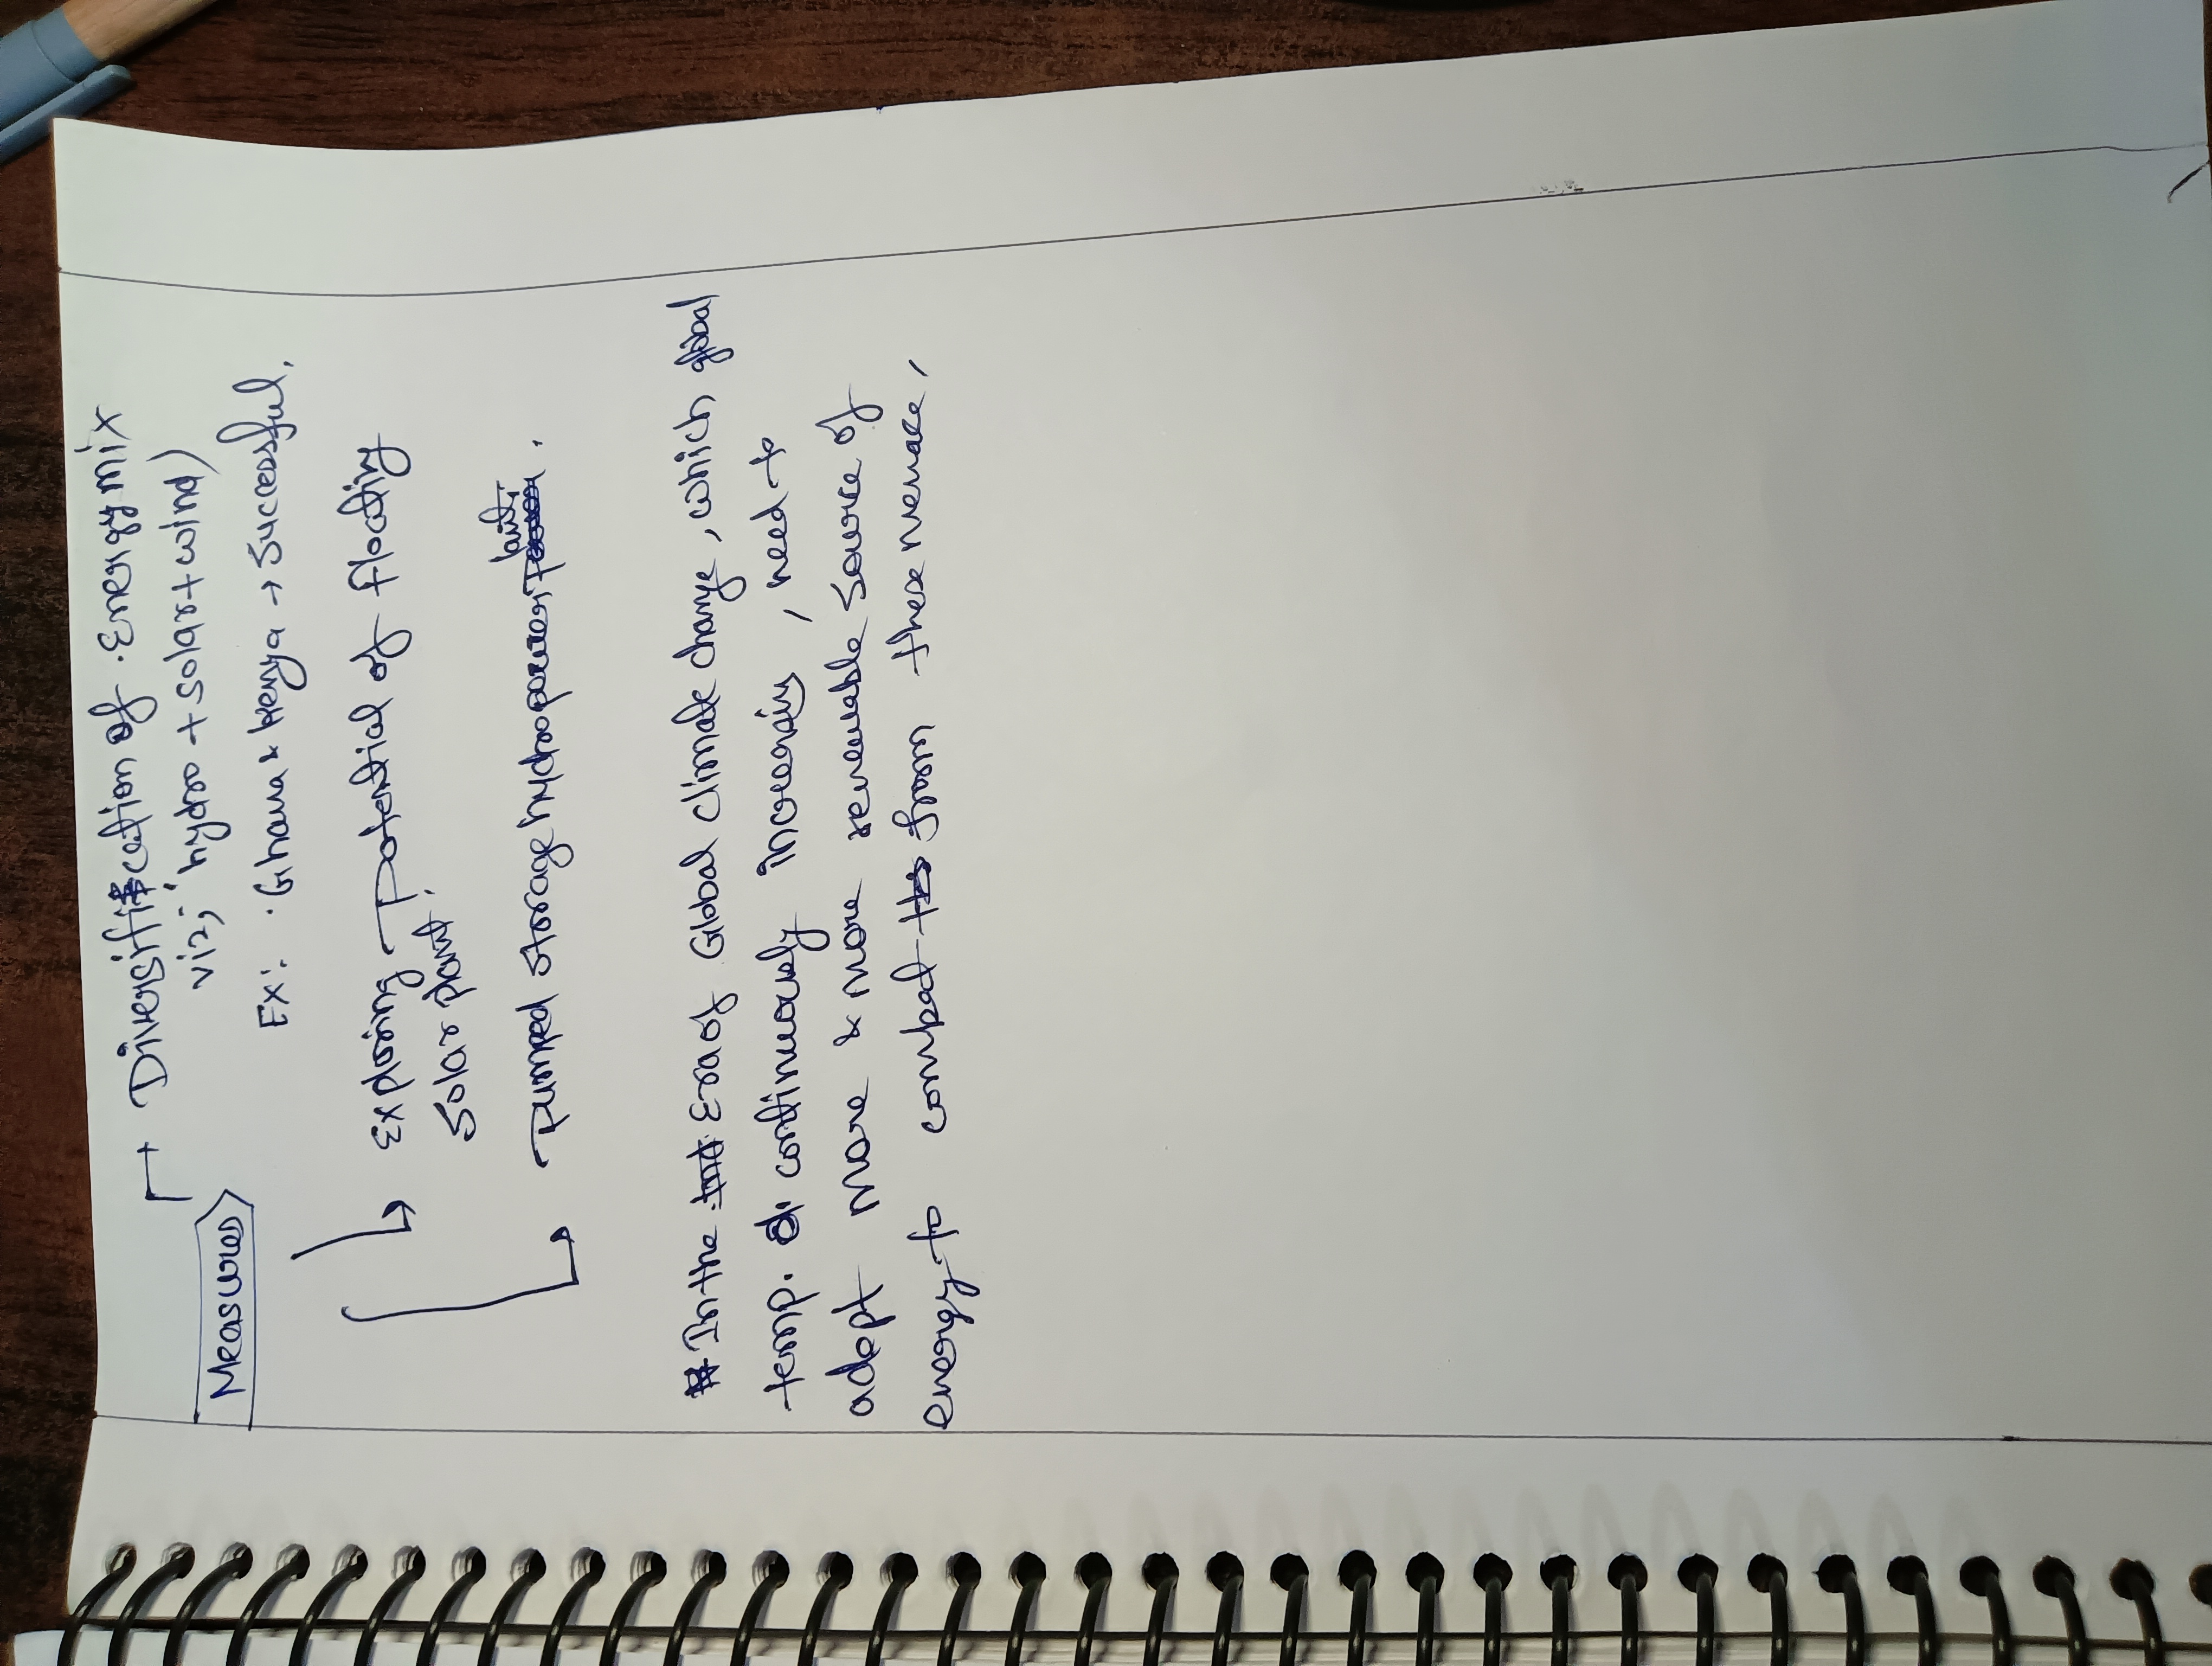 → Diversification of Energy mix
viz; hydro + solar + wind)
Measures
Ex: Ghana & Kenya → Successful.
→ Exploring potential of floating
solar plant.
→ pumped storage hydropower
# In the Era of Global climate change, which global
temp. continuously increasing, need to
adopt more & more renewable source of
energy to combat from these menace,